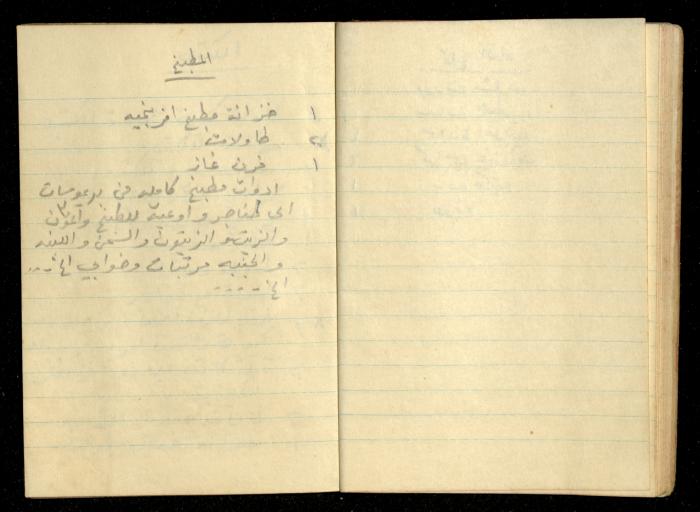 المطبخ
١ خزانة مطبخ افرنجيه
٢ طاولات
١ فرن غاز
ادوات مطبخ كامله من
الى طناجر و أوعية للطبخ والمؤن
والزيت و الزيتون والسمن واللبنه
والجبنه مرتبات وخوابي الخ....
الخ.....